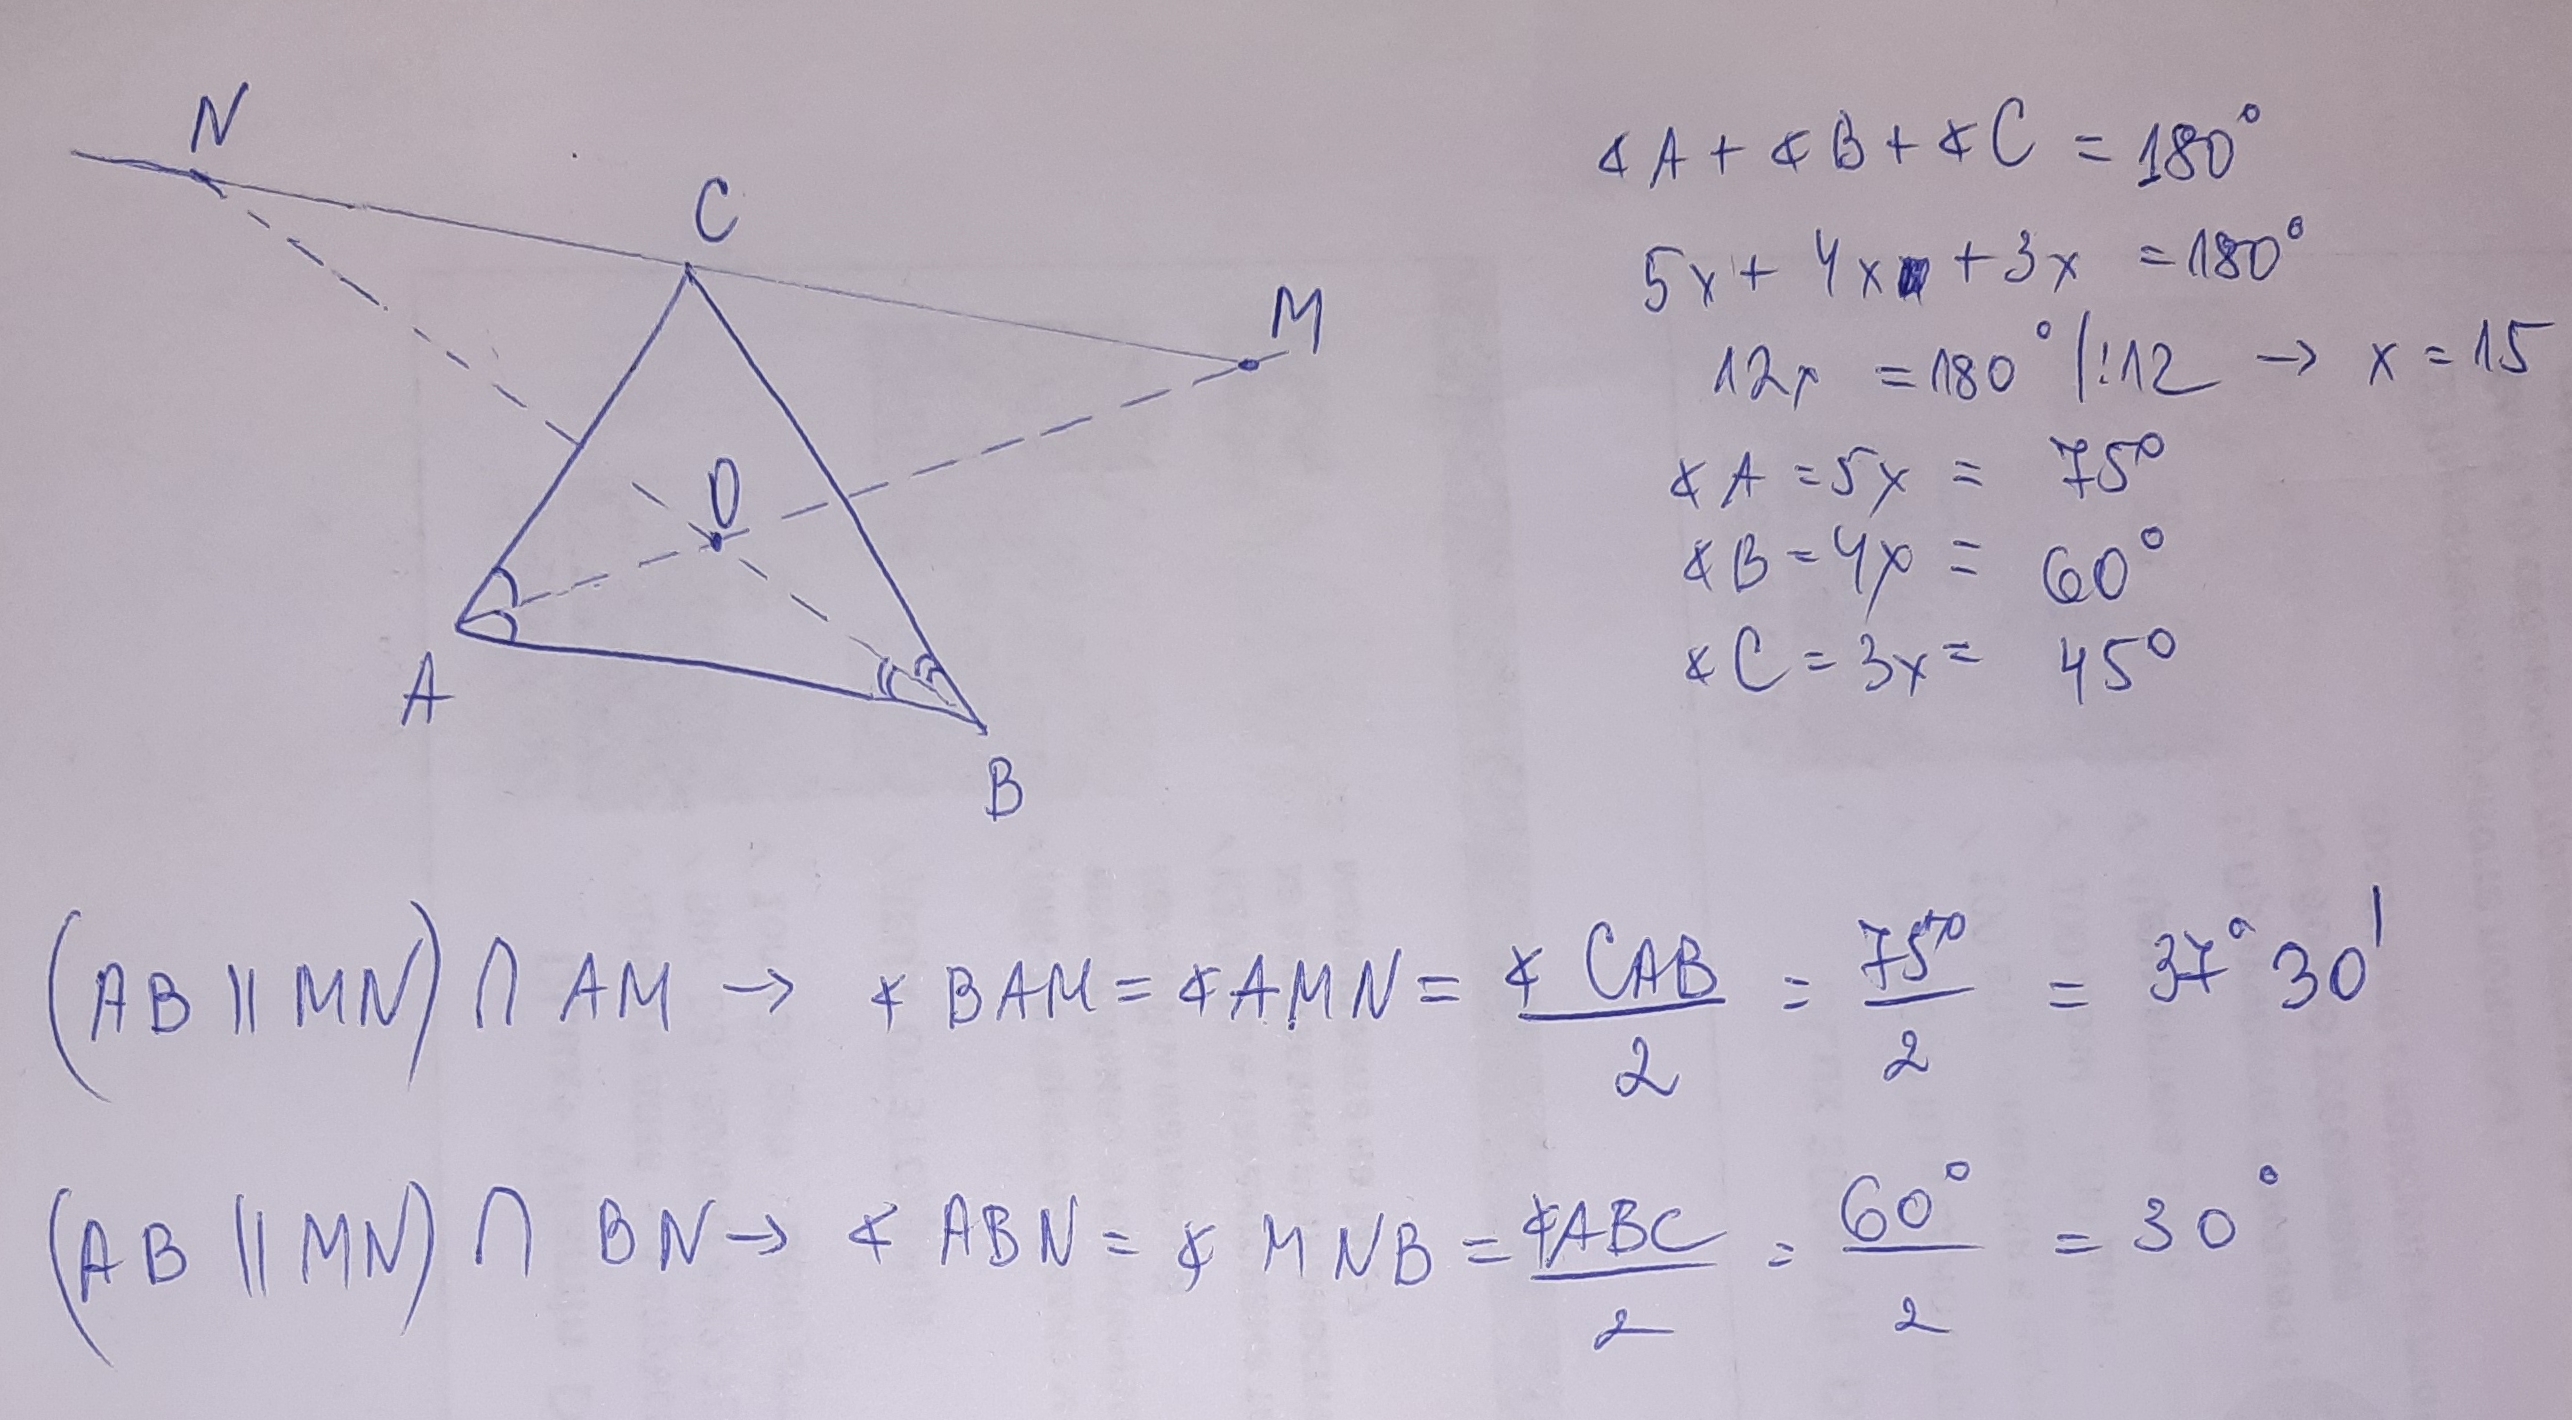 N
C
M
O
A
B
∢A + ∢B + ∢C = 180°
5x + 4x + 3x = 180°
12x = 180° |:12 → x = 15
∢A = 5x = 75°
∢B = 4x = 60°
∢C = 3x = 45°
(AB || MN) ∩ AM → ∢BAM = ∢AMN = ∢CAB/2 = 75°/2 = 37°30'
(AB || MN) ∩ BN → ∢ABN = ∢MNB = ∢ABC/2 = 60°/2 = 30°